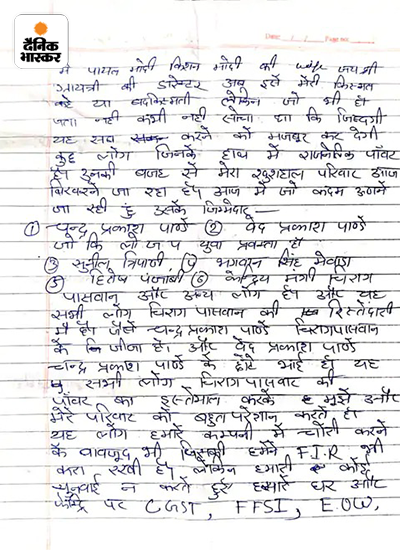 दैनिक
भास्कर
Date / / Page no.
मै पायल मोदी किशन मोदी की wife जयश्री
गायत्री की डारेक्टर अब इसे मेरी किस्मत
कहे या बदकिस्मती लेकिन जो भी हो
पता नही कभी नही सोचा था कि जिन्दगी
यह सब करने को मजबूर कर देगी
कुछ लोग जिनके हाथ में राजनैतिक पॉवर
है उनकी वजह से मेरा खुशहाल परिवार आज
बिखरने जा रहा है आज मे जो कदम उठाने
जा रही हूं उसके जिम्मेदार —
① चन्द्र प्रकाश पाण्डे ② वेद प्रकाश पाण्डे
जो कि लो ज प युवा प्रवक्ता है
③ सुनील त्रिपाठी ④ भगवान सिंह मेवाडा
⑤ हितेष पंजाबी ⑥ केन्द्रिय मंत्री चिराग
पासवान और अन्य लोग है और यह
सभी लोग चिराग पासवान की रिस्तेदारी
मे है। जैसे चन्द्र प्रकाश पाण्डे चिराग पासवान
के जीजा है और वेद प्रकाश पाण्डे
चन्द्र प्रकाश पाण्डे के छोटे भाई है यह
सभी लोग चिराग पासवान की
पॉवर का इस्तेमाल करके मुझे और
मेरे परिवार को बहुत परेशान करते है।
यह लोग हमारे कम्पनी मे चोरी करने
के बावजूद भी जिसकी हमने F.I.R भी
करा रखी है लेकिन हमारी कोई
सुनवाई न करते हुए हमारे घर और
फेक्ट्रि पर CGST, FFSI, E.O.W,